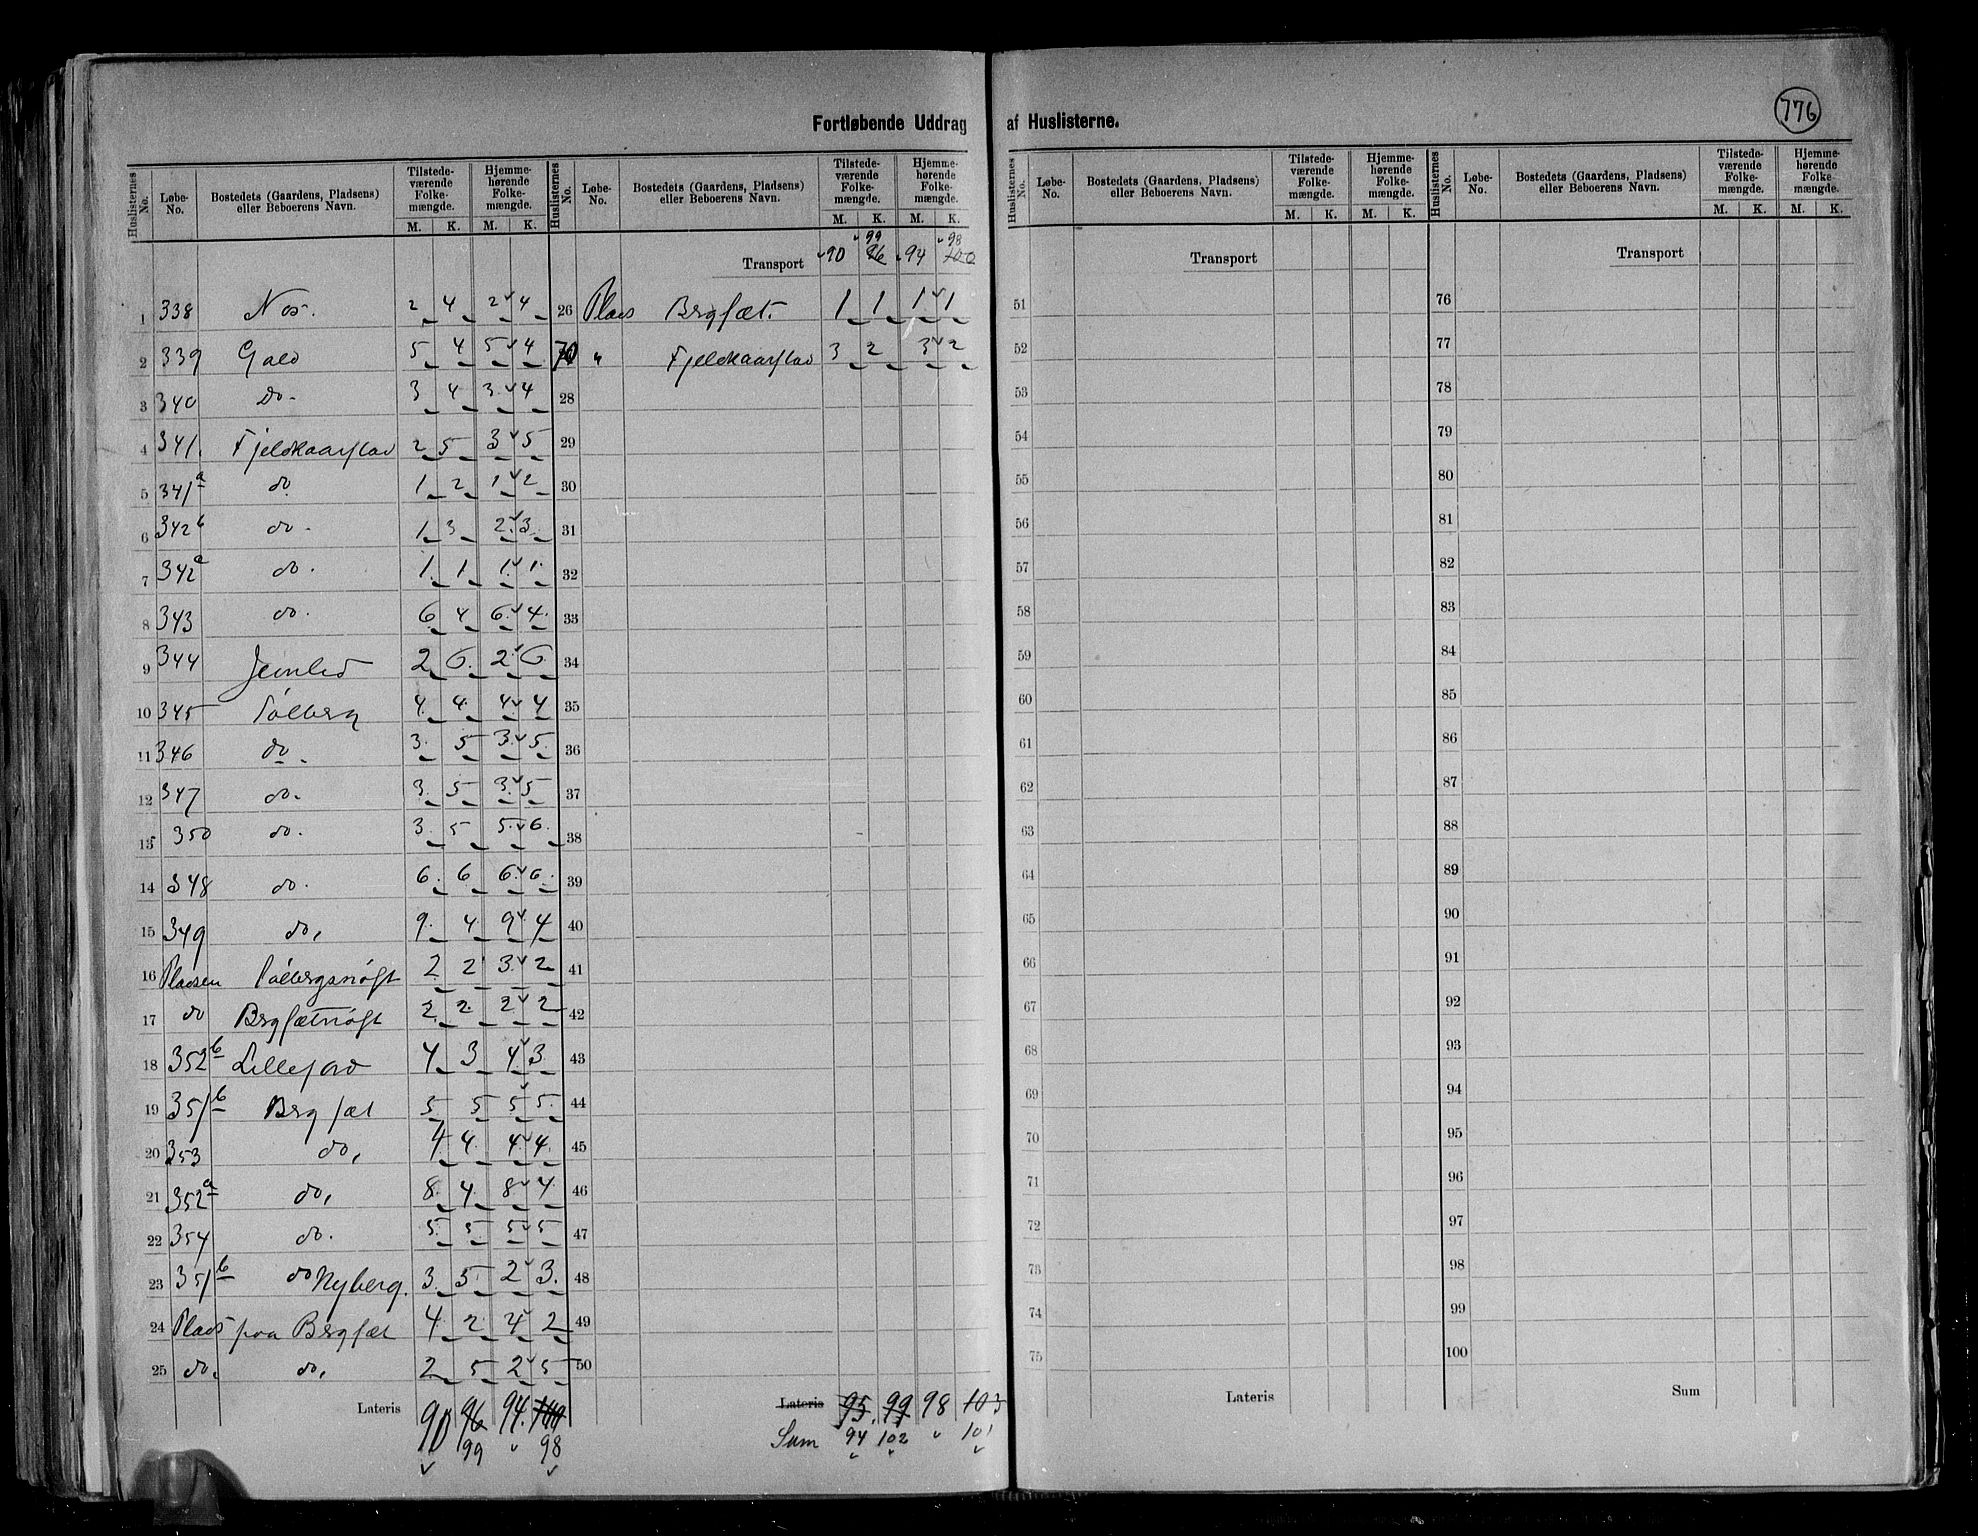 776
Fortløbende Uddrag af Huslisterne.
Huslisternes No. Løbe-No. Bostedets (Gaardens, Pladsens) eller Beboerens Navn. Tilstede-værende Folke-mængde. M. K. Hjemme-hørende Folke-mængde. M. K.
Huslisternes No. Løbe-No. Bostedets (Gaardens, Pladsens) eller Beboerens Navn. Tilstede-værende Folke-mængde. M. K. Hjemme-hørende Folke-mængde. M. K.
Huslisternes No. Løbe-No. Bostedets (Gaardens, Pladsens) eller Beboerens Navn. Tilstede-værende Folke-mængde. M. K. Hjemme-hørende Folke-mængde. M. K.
Huslisternes No. Løbe-No. Bostedets (Gaardens, Pladsens) eller Beboerens Navn. Tilstede-værende Folke-mængde. M. K. Hjemme-hørende Folke-mængde. M. K.
1 338 Nos. 2 4 2 4
2 339 Gald 5 4 5 4
3 340 do. 3 4 3 4
4 341. Fjeldkaarstad 2 5 3 5
5 341a do. 1 2 1 2
6 342b do. 1 3 2 3
7 342a do. 1 1 1 1
8 343 do. 6 4 6 4
9 344 2 6 2 6
10 345 4 4 4 4
11 346 do. 3 5 3 5
12 347 do. 3 5 3 5
13 350 do. 3 5 5 6
14 348 do. 6 6 6 6
15 349 do, 9 4 9 4
16 Pladsen 2 2 3 2
17 do 2 2 2 2
18 352b Lillejord 4 3 4 3
19 351b Bergsæt 5 5 5 5
20 353 do, 4 4 4 4
21 352a do, 8 4 8 4
22 354 do. 5 5 5 5
23 351b do Nyberg. 3 5 2 3
24 Plads paa Bergsæt 4 2 4 2
25 do. do, 2 5 2 5
Lateris 90 96 94 100
99 98
99 98
Transport 90 96 94 100
26 Plads Bergsæt. 1 1 1 1
" Fjeldkaarstad 3 2 3 2
28
29
30
31
32
33
34
35
36
37
38
39
40
41
42
43
44
45
46
47
48
49
50
Lateris 95 99 98 103
Sum 94 102 101
Transport
51
52
53
54
55
56
57
58
59
60
61
62
63
64
65
66
67
68
69
70
71
72
73
74
75
Lateris
Transport
76
77
78
79
80
81
82
83
84
85
86
87
88
89
90
91
92
93
94
95
96
97
98
99
100
Sum